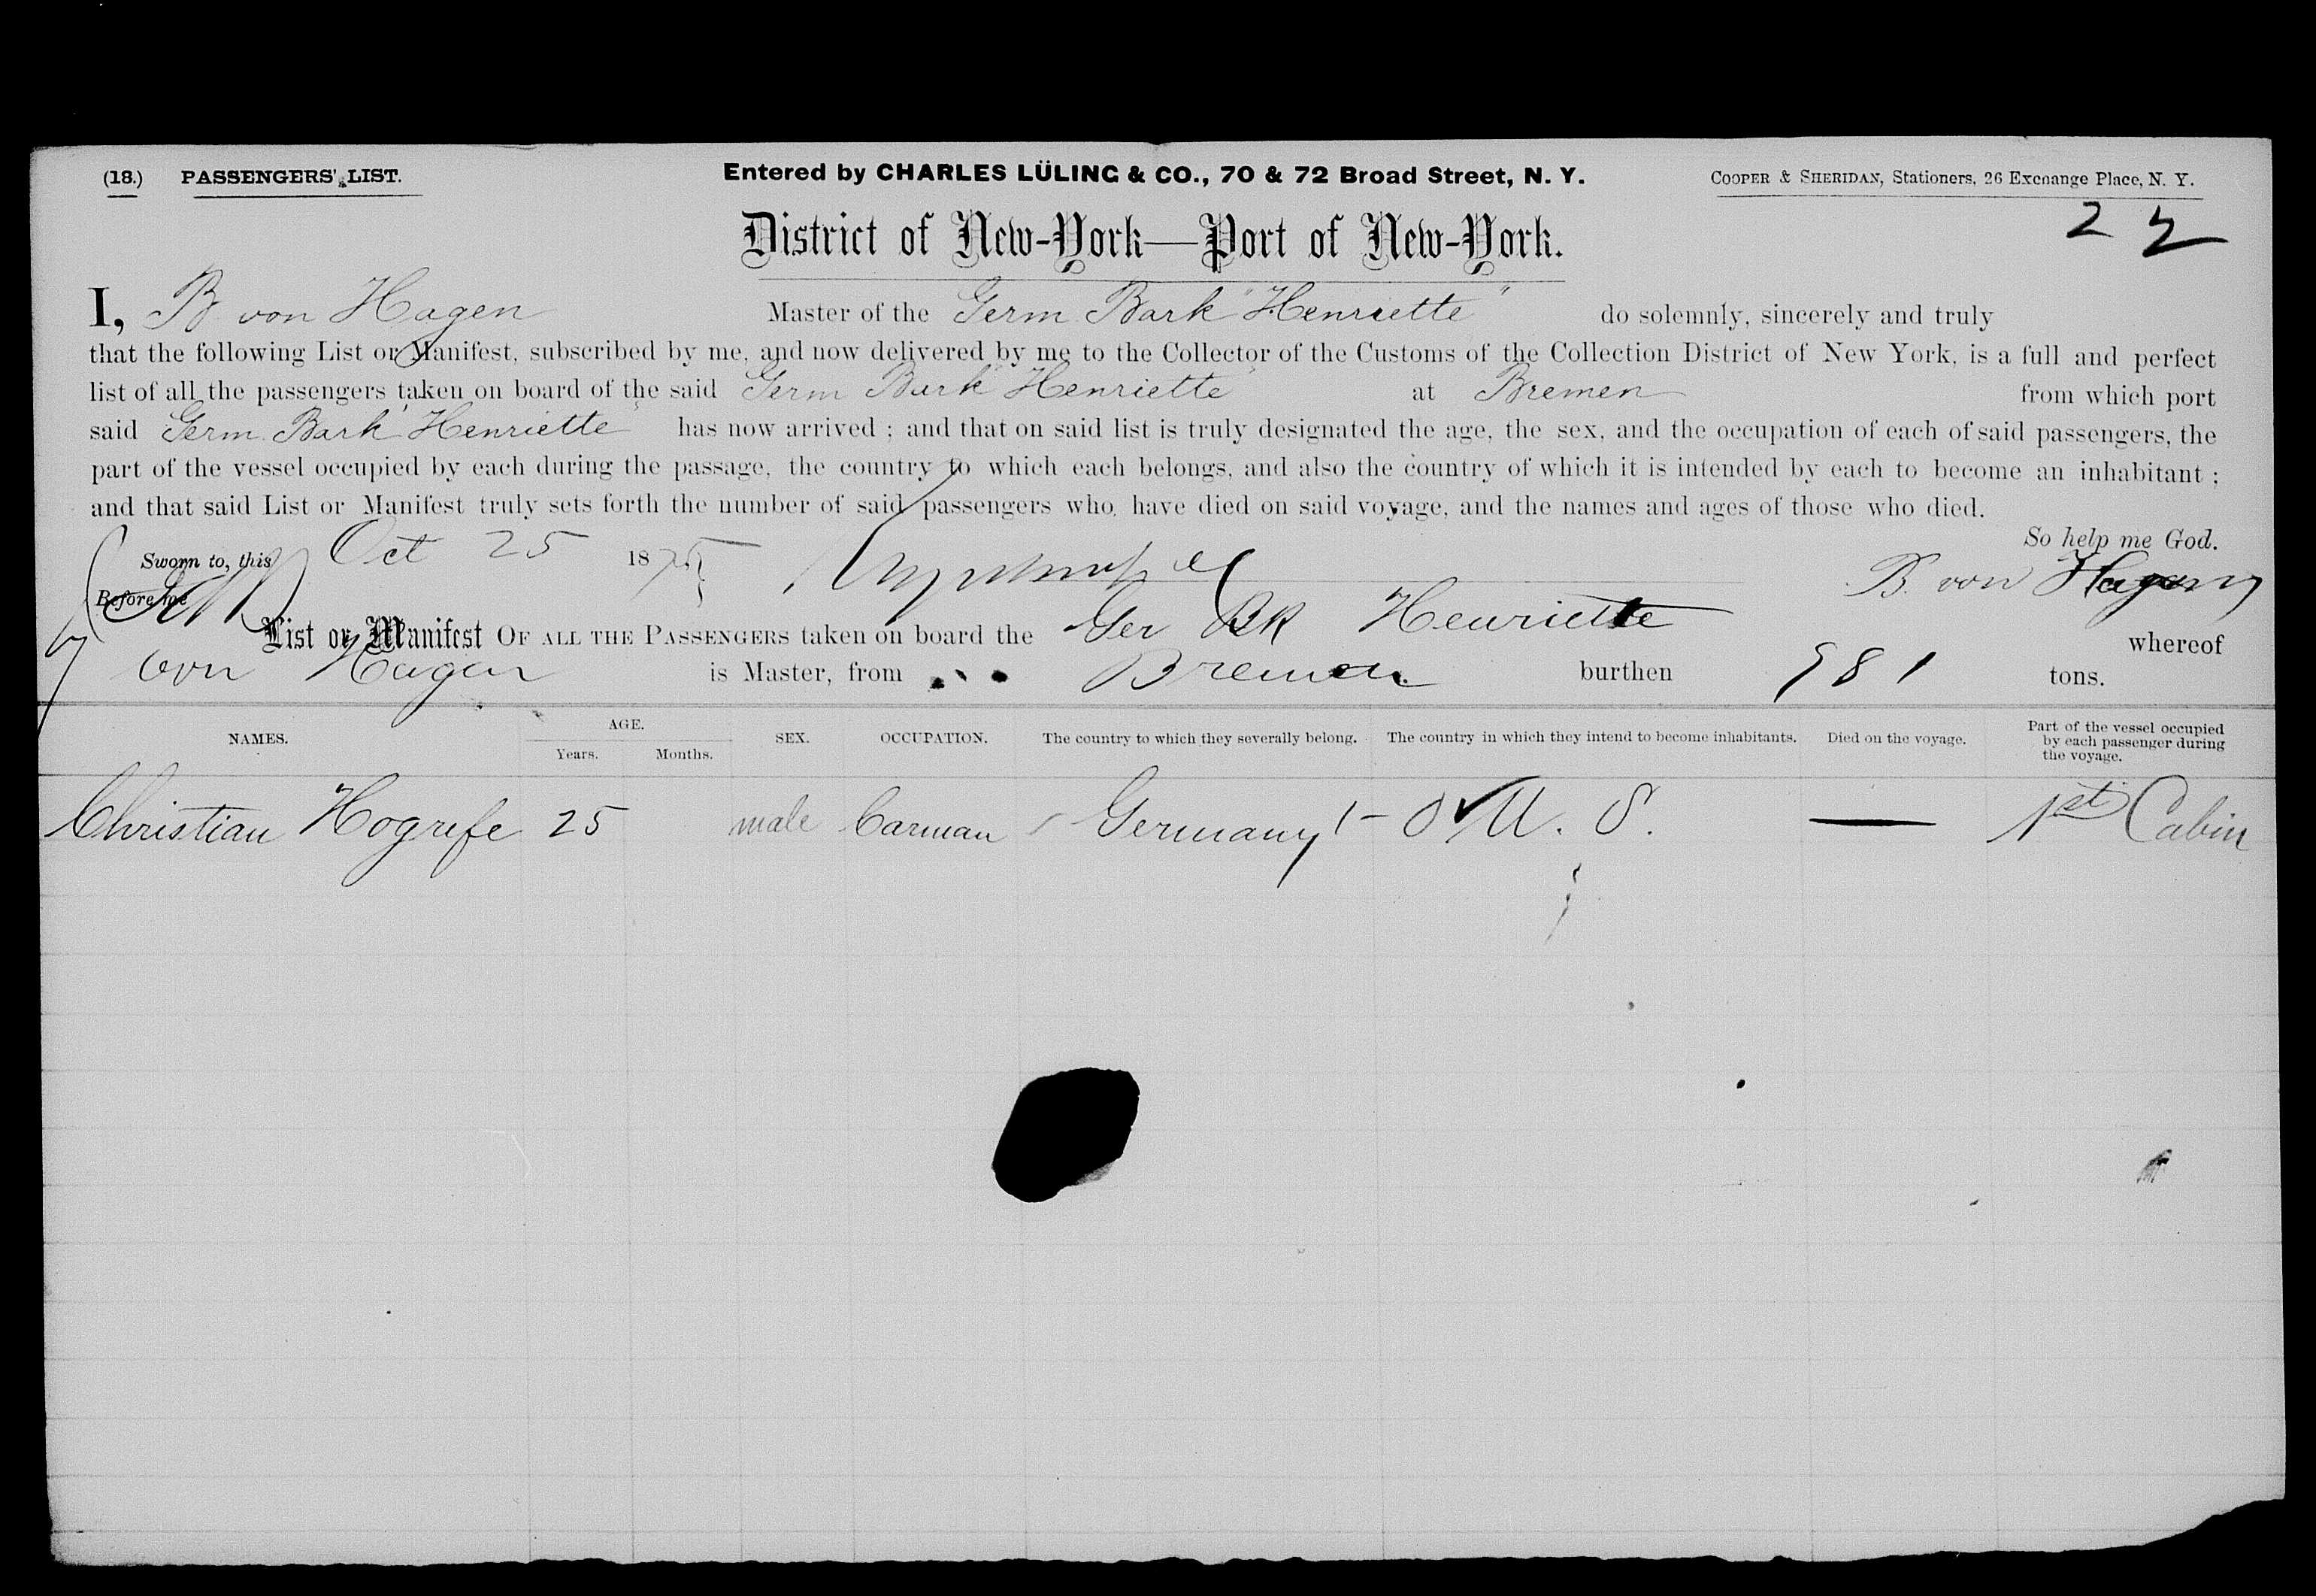 (18.) PASSENGERS' LIST. Entered by CHARLES LÜLING & CO., 70 & 72 Broad Street, N. Y. COOPER & SHERIDAN, Stationers, 26 Exchange Place, N. Y.
District of New-York—Port of New-York. 2 2
I, B von Hagen Master of the Germ Bark "Henriette" do solemnly, sincerely and truly
that the following List or Manifest, subscribed by me, and now delivered by me to the Collector of the Customs of the Collection District of New York, is a full and perfect
list of all the passengers taken on board of the said Germ Bark "Henriette" at Bremen from which port
said Germ. Bark "Henriette" has now arrived ; and that on said list is truly designated the age, the sex, and the occupation of each of said passengers, the
part of the vessel occupied by each during the passage, the country to which each belongs, and also the country of which it is intended by each to become an inhabitant ;
and that said List or Manifest truly sets forth the number of said passengers who have died on said voyage, and the names and ages of those who died.
So help me God.
Sworn to, this Oct 25 1875 B. von Hagen
Before me
List or Manifest OF ALL THE PASSENGERS taken on board the Ger Bk Henriette whereof
von Hagen is Master, from Bremen burthen 981 tons.
NAMES. AGE. Years. Months. SEX. OCCUPATION. The country to which they severally belong. The country in which they intend to become inhabitants. Died on the voyage. Part of the vessel occupied by each passenger during the voyage.
Christian Hogrefe 25 male Carman Germany 1 - 0 ✓ U. S. — 1st Cabin